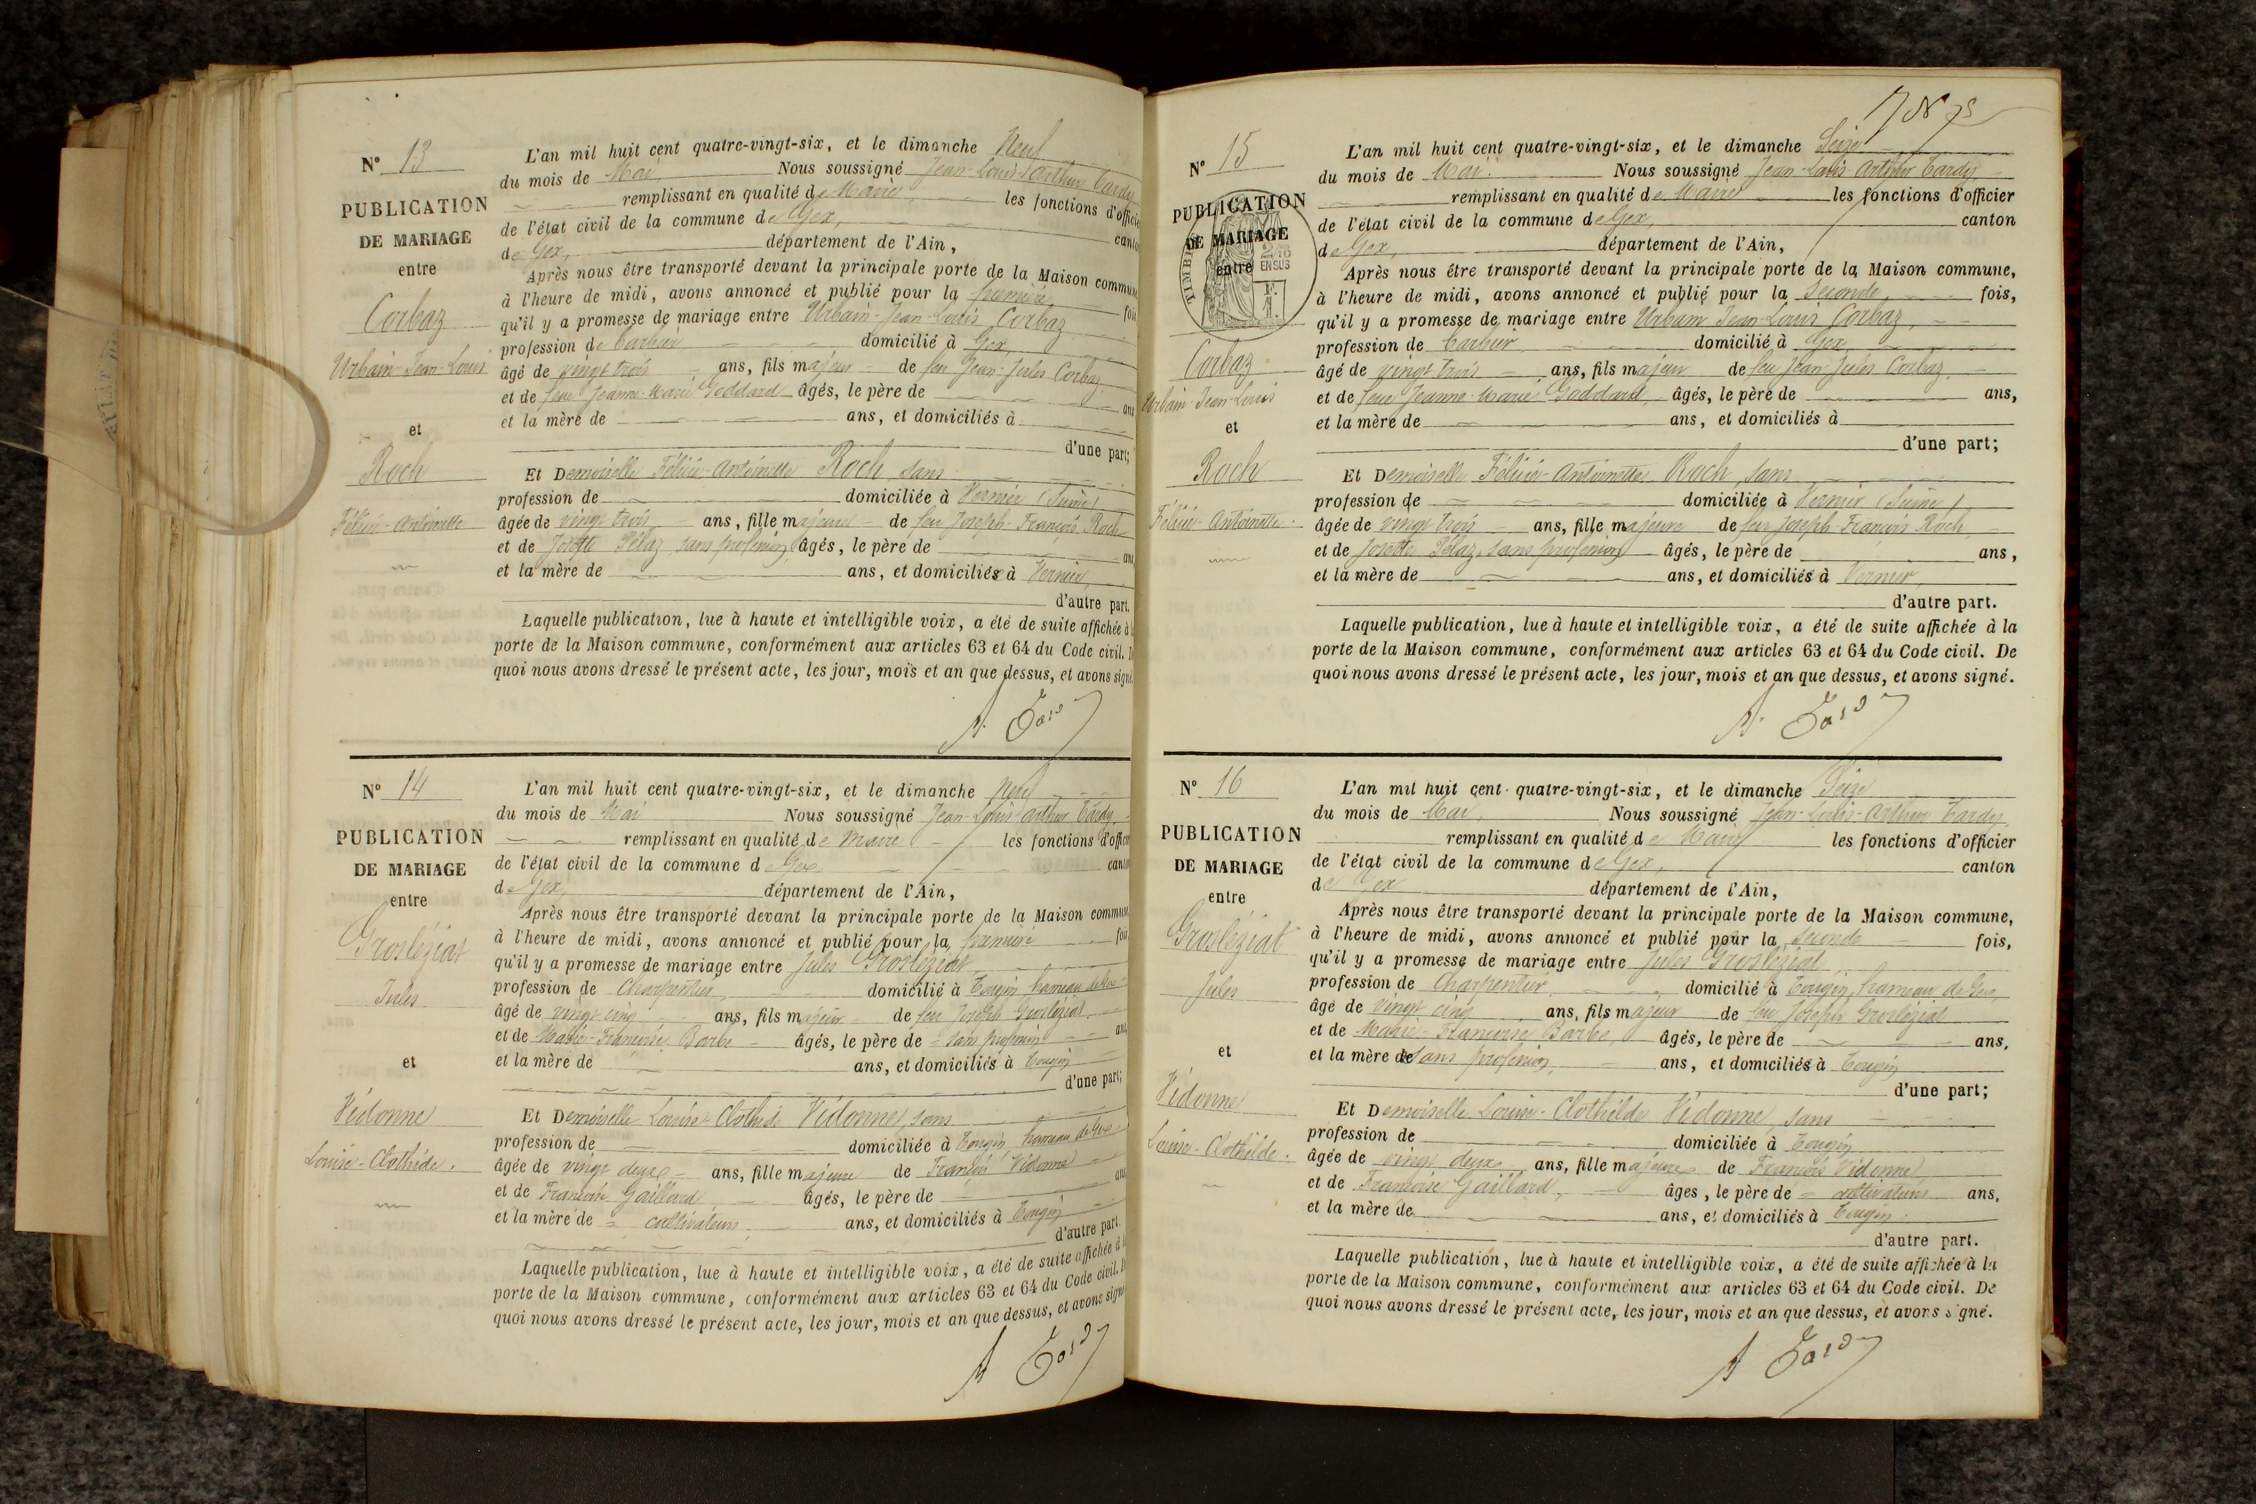 N° 13
PUBLICATION
DE MARIAGE
entre
Corbaz
Urbain-Jean-Louis
et
Roch
Félicie-Antoinette
L'an mil huit cent quatre-vingt-six, et le dimanche Neuf
du mois de Mai Nous soussigné Jean-Louis-Arthur Tardy
remplissant en qualité de Maire les fonctions d'officier
de l'état civil de la commune de Gex, canton
de Gex, département de l'Ain,
Après nous être transporté devant la principale porte de la Maison commune,
à l'heure de midi, avons annoncé et publié pour la première fois
qu'il y a promesse de mariage entre Urbain-Jean-Louis Corbaz
profession de barbier domicilié à Gex,
âgé de vingt trois ans, fils majeur de feu Jean-Jules Corbaz
et de feue Jeanne-Marie Goddard âgés, le père de ans
et la mère de ans, et domiciliés à
d'une part;
Et Demoiselle Félicie-Antoinette Roch sans
profession de domiciliée à Vernier (Suisse)
âgée de vingt trois ans, fille majeure de feu Joseph-François Roch
et de Josette Pélaz sans profession âgés, le père de ans
et la mère de ans, et domiciliés à Vernier
d'autre part.
Laquelle publication, lue à haute et intelligible voix, a été de suite affichée à la
porte de la Maison commune, conformément aux articles 63 et 64 du Code civil. De
quoi nous avons dressé le présent acte, les jour, mois et an que dessus, et avons signé.
A. Tardy
N° 14
PUBLICATION
DE MARIAGE
entre
Grosléziat
Jules
et
Vidonne
Louise-Clothilde.
L'an mil huit cent quatre-vingt-six, et le dimanche Neuf
du mois de Mai Nous soussigné Jean-Louis-Arthur Tardy,
remplissant en qualité de Maire les fonctions d'officier
de l'état civil de la commune de Gex, canton
de Gex, département de l'Ain,
Après nous être transporté devant la principale porte de la Maison commune,
à l'heure de midi, avons annoncé et publié pour la première fois
qu'il y a promesse de mariage entre Jules Grosléziat
profession de Charpentier domicilié à Tougin hameau de Gex
âgé de vingt cinq ans, fils majeur de feu Joseph Grosléziat
et de Marie-Françoise Barbe âgés, le père de = sans profession ans
et la mère de ans, et domiciliés à Tougin
d'une part;
Et Demoiselle Louise-Clothilde Vidonne, sans
profession de domiciliée à Tougin, hameau de Gex
âgée de vingt deux ans, fille majeure de François Vidonne
et de Françoise Gaillard âgés, le père de ans
et la mère de = cultivateurs ans, et domiciliés à Tougin
d'autre part.
Laquelle publication, lue à haute et intelligible voix, a été de suite affichée à la
porte de la Maison commune, conformément aux articles 63 et 64 du Code civil. De
quoi nous avons dressé le présent acte, les jour, mois et an que dessus, et avons signé
A Tardy
N° 15
PUBLICATION
DE MARIAGE
entre
TIMBRE
2/10
EN SUS
Corbaz
Urbain-Jean-Louis
et
Roch
Félicie-Antoinette
L'an mil huit cent quatre-vingt-six, et le dimanche Seize
du mois de Mai. Nous soussigné Jean-Louis-Arthur Tardy
remplissant en qualité de Maire les fonctions d'officier
de l'état civil de la commune de Gex, canton
de Gex, département de l'Ain,
Après nous être transporté devant la principale porte de la Maison commune,
à l'heure de midi, avons annoncé et publié pour la seconde fois,
qu'il y a promesse de mariage entre Urbain Jean Louis Corbaz,
profession de barbier domicilié à Gex,
âgé de vingt trois ans, fils majeur de feu Jean-Jules Corbaz
et de feue Jeanne-Marie Goddard, âgés, le père de ans,
et la mère de ans, et domiciliés à
d'une part;
Et Demoiselle Félicie-Antoinette Roch, sans
profession de domiciliée à Vernier (Suisse)
âgée de vingt trois ans, fille majeure de feu Joseph-François Roch,
et de Josette Pélaz, sans profession âgés, le père de ans,
et la mère de ans, et domiciliés à Vernier,
d'autre part.
Laquelle publication, lue à haute et intelligible voix, a été de suite affichée à la
porte de la Maison commune, conformément aux articles 63 et 64 du Code civil. De
quoi nous avons dressé le présent acte, les jour, mois et an que dessus, et avons signé.
A. Tardy
N° 16
PUBLICATION
DE MARIAGE
entre
Grosléziat
Jules
et
Vidonne
Louise-Clothilde.
L'an mil huit cent quatre-vingt-six, et le dimanche Seize
du mois de Mai, Nous soussigné Jean-Louis-Arthur Tardy
remplissant en qualité de Maire les fonctions d'officier
de l'état civil de la commune de Gex, canton
de Gex département de l'Ain,
Après nous être transporté devant la principale porte de la Maison commune,
à l'heure de midi, avons annoncé et publié pour la seconde fois,
qu'il y a promesse de mariage entre Jules Groslézial
profession de Charpentier domicilié à Tougin, hameau de Gex,
âgé de vingt cinq ans, fils majeur de feu Joseph Grosléziat
et de Marie-Françoise Barbe, âgés, le père de ans,
et la mère de sans profession, ans, et domiciliés à Tougin
d'une part;
Et Demoiselle Louise-Clothilde Vidonne, sans
profession de domiciliée à Tougin
âgée de vingt deux ans, fille majeure de François Vidonne
et de Françoise Gaillard, âges, le père de = cultivateurs ans,
et la mère de ans, et domiciliés à Tougin.
d'autre part.
Laquelle publication, lue à haute et intelligible voix, a été de suite affichée à la
porte de la Maison commune, conformément aux articles 63 et 64 du Code civil. De
quoi nous avons dressé le présent acte, les jour, mois et an que dessus, et avons signé.
A Tardy